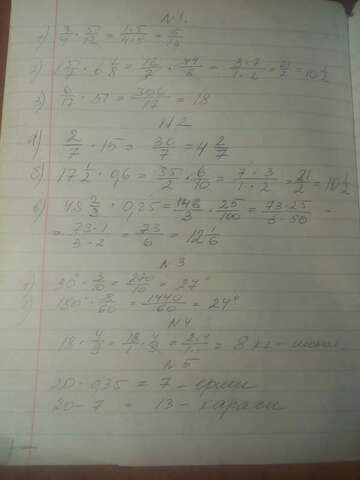 N 1.
1) 3/4 · 5/12 = 1·5/4·4 = 5/16
2) 1 5/7 · 6 1/8 = /7 · 49/8 = 3·7/1·2 = 21/2 = 10 1/2
3) 6/17 · 51 = 306/17 = 18
N 2
а) 2/7 · 15 = 30/7 = 4 2/7
б) 17 1/2 · 0,6 = 35/2 · 6/10 = 7·3/1·2 = 21/2 = 10 1/2
в) 48 2/3 · 0,25 = 146/3 · 25/100 = 73·25/3·50 =
= 73·1/3·2 = 73/6 = 12 1/6
N 3
30° · 9/10 = 270/10 = 27°
180° · 8/60 = 1440/60 = 24°
N 4
18 · 4/9 = 18/1 · 4/9 = 2·4/1·1 = 8 кг -
N 5
20 · 0,35 = 7 - ерши
20 - 7 = 13 - караси